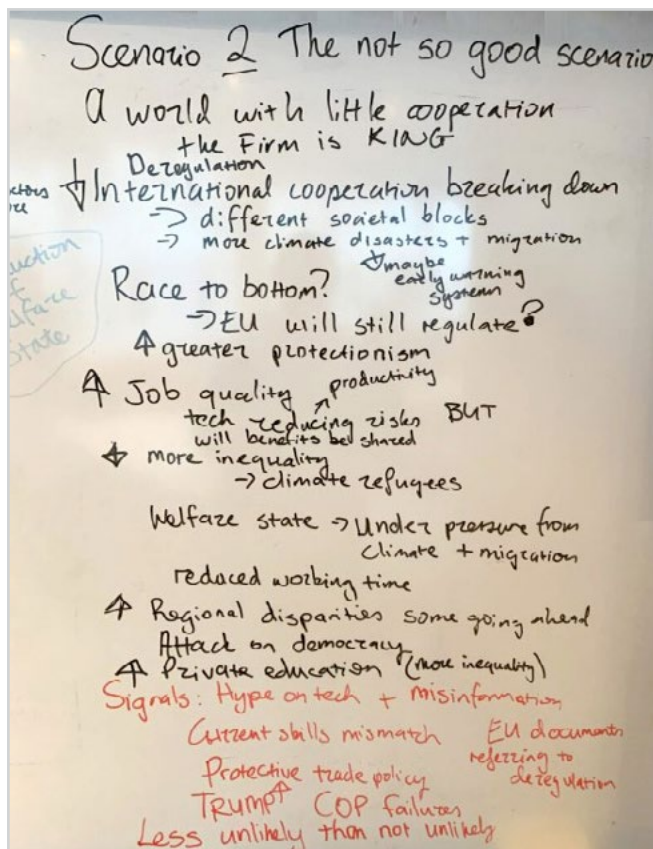 Scenario 2 The not so good scenario
A world with little cooperation
the Firm is KING
Deregulation
↓ International cooperation breaking down
→ different societal blocks
→ more climate disasters + migration
↓ maybe
early warning
system
Race to bottom?
→ EU will still regulate?
↑ greater protectionism
↑ Job quality ↗ productivity
tech reducing risks BUT
will benefits be shared
↓ more inequality
→ climate refugees
Welfare state → Under pressure from
climate + migration
reduced working time
↑ Regional disparities some going ahead
Attack on democracy
↑ Private education (more inequality)
Signals: Hype on tech + misinformation
Current skills mismatch
EU documents
referring to
deregulation
Protective trade policy
TRUMP↑ COP failures
Less unlikely than not unlikely
uction
state